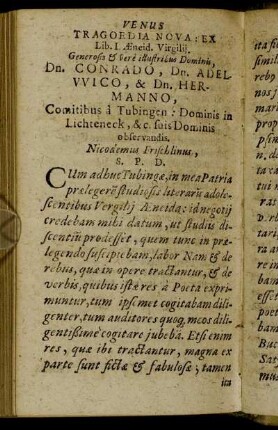 VENUS
TRAGOEDIA NOVA: EX
Lib. I. Æneid. Virgilij.
Generosis & verè illustribus Dominis,
Dn. CONRADO, Dn. ADEL
VVICO, & Dn. HER-
MANNO,
Comitibus à Tubingen: Dominis in
Lichteneck, &c. suis Dominis
observandis.
Nicodemus Frischlinus,
S. P. D.
CUm adhuc Tubingæ, in mea Patria
prælegerē studiosis literarū adole-
scentibus Vergilij Æneida: id negotij
credebam mihi datum, ut studiis di-
scentiū prodesset, quem tunc in præ-
legendo suscipiebam, labor. Nam & de
rebus, quæ in opere tractantur, & de
verbis, quibus istæ res à Poëta expri-
muntur, tum ipsemet cogitabam dili-
genter, tum auditores quoq; meos dili-
gentissimè cogitare jubebā. Etsi enim
res, quæ ibi tractantur, magna ex
parte sunt fictæ & fabulosæ; tamen
ita